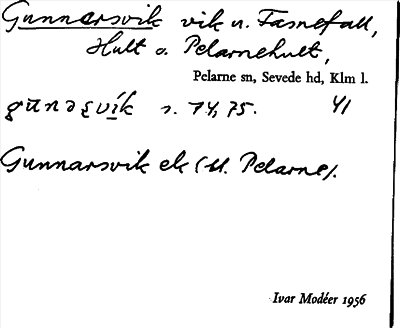 Gunnarsvik vik u. Fasnefall,
Hult o. Pelarnehult,
Pelarne sn, Sevede hd, Klm l.
s. 74, 75. 41
Gunnarsvik ek (bl. Pelarne).
Ivar Modéer 1956